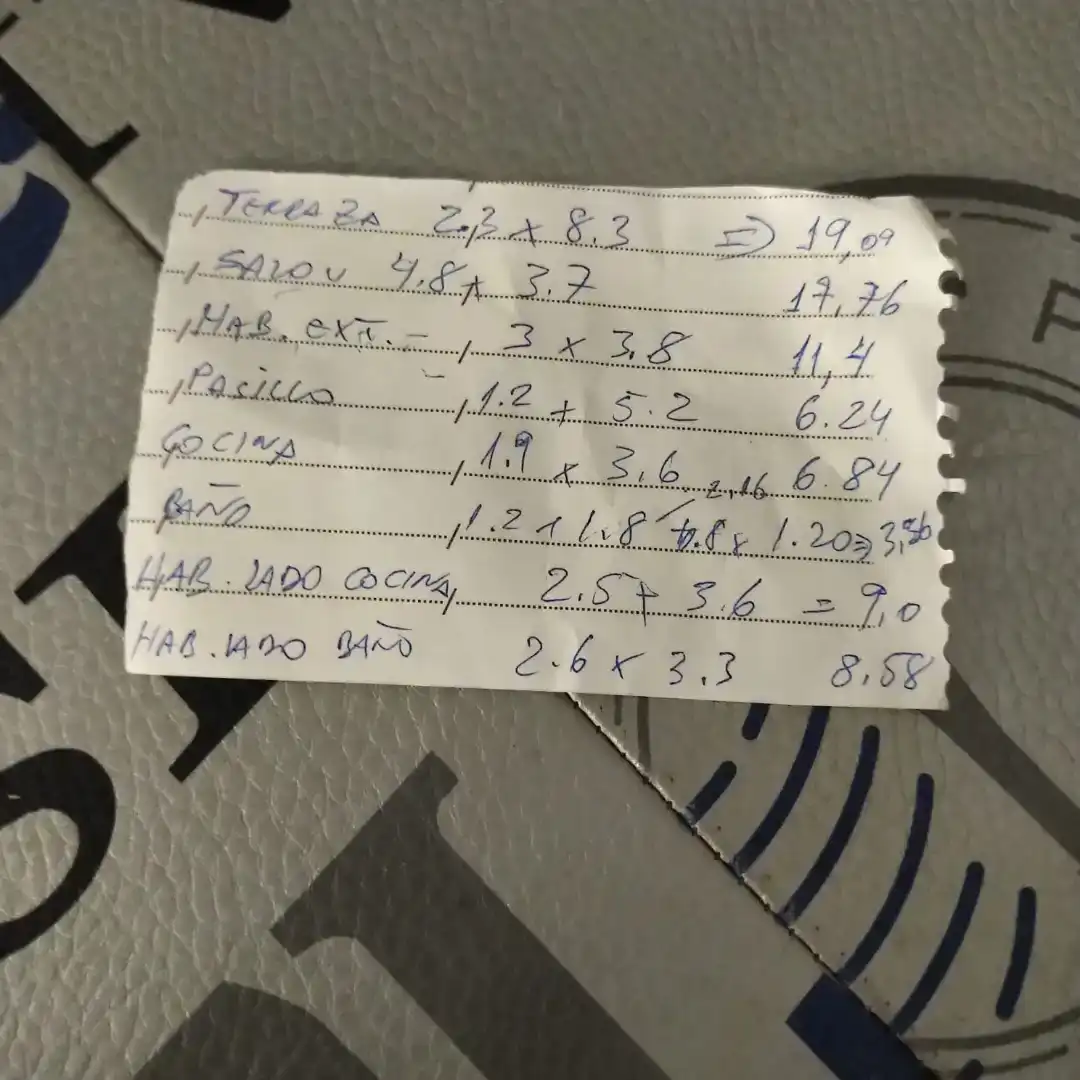 TERRAZA 2.3 x 8.3 => 19,09
SALON 4.8 x 3.7 17,76
HAB. EXT. - 3 x 3.8 11,4
PASILLO - 1.2 + 5.2 6.24
COCINA 1.9 x 3,6 6.84
2,16
BAÑO 1.2 + 1.8 0.8 x 1.20 =>
HAB. LADO COCINA, 2.5 + 3.6 = 9,0
HAB. LADO BAÑO 2.6 x 3.3 8,58
P